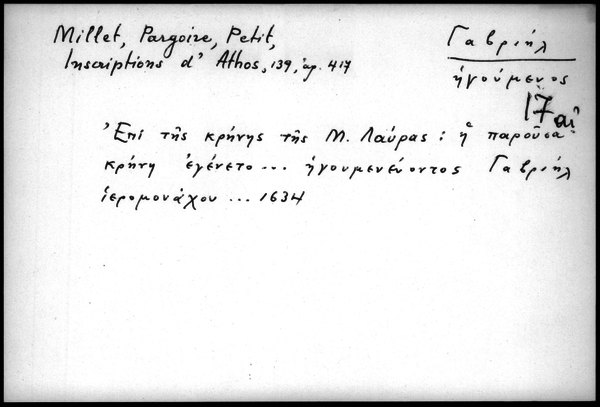 Millet, Pargoire, Petit,
Inscriptions d' Athos, 139, ἀρ. 417
Γαβριήλ
ἡγούμενος
17 αἰ
Ἐπὶ τῆς κρήνης τῆς Μ. Λαύρας : ἡ παροῦσα
κρήνη ἐγένετο ... ἡγουμενεύοντος Γαβριήλ
ἱερομονάχου ... 1634